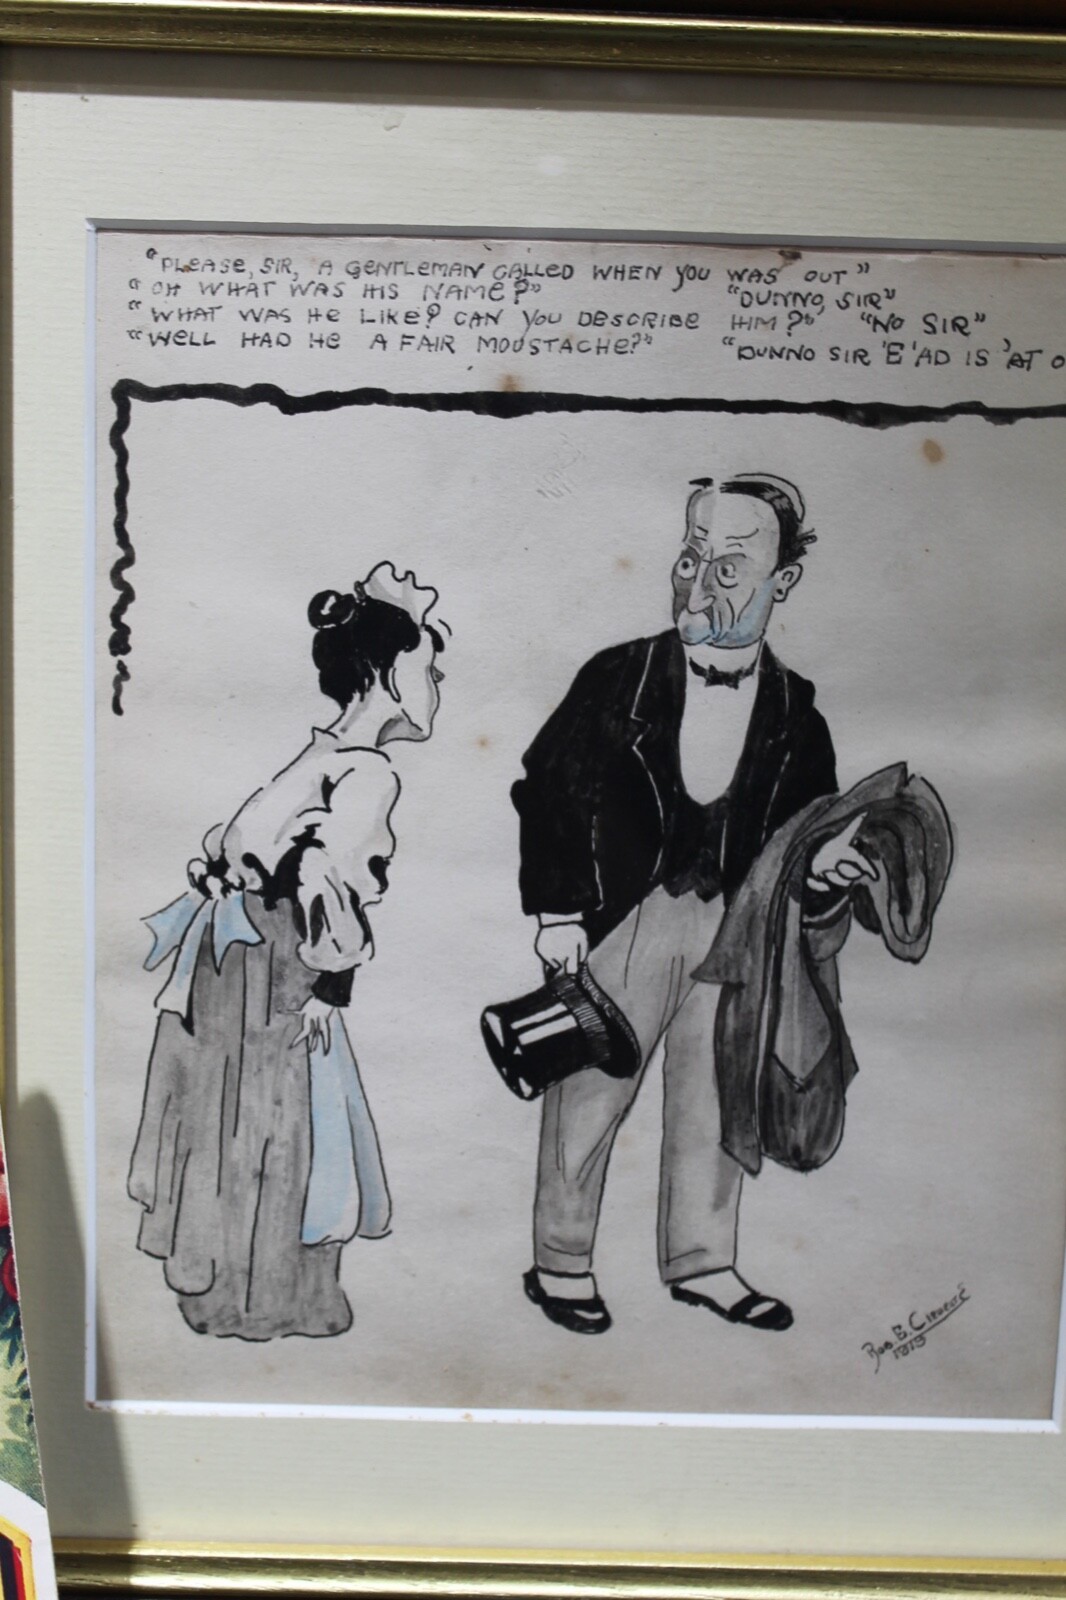 "PLEASE, SIR, A GENTLEMAN CALLED WHEN YOU WAS OUT"
"OH WHAT WAS HIS NAME?" "DUNNO, SIR"
"WHAT WAS HE LIKE? CAN YOU DESCRIBE HIM?" "NO SIR"
"WELL HAD HE A FAIR MOUSTACHE?" "DUNNO SIR 'E 'AD IS 'AT O
Rob. E.